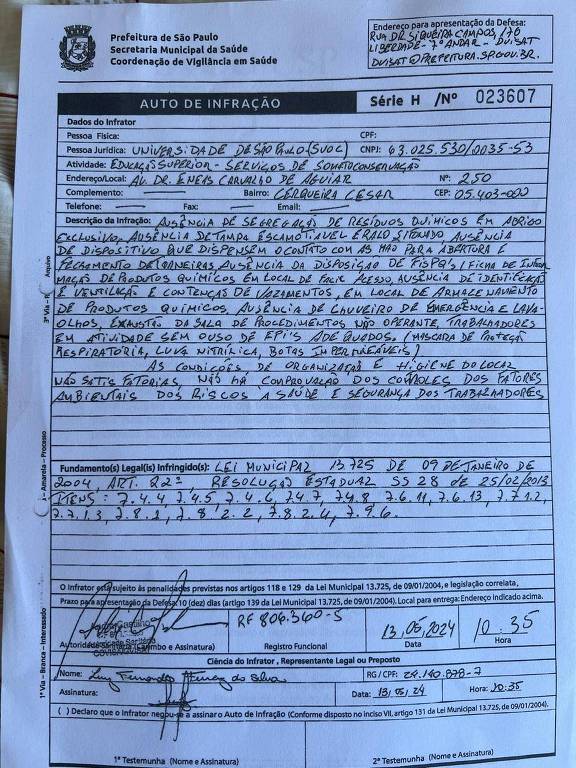 Prefeitura de São Paulo
Secretaria Municipal da Saúde
Coordenação de Vigilância em Saúde
Endereço para apresentação da Defesa:
RUA DR SIQUEIRA CAMPOS, 176
LIBERDADE - 7º ANDAR - DVISAT
DVISAT@PREFEITURA.SP.GOV.BR.
AUTO DE INFRAÇÃO
Série H /Nº 023607
Dados do Infrator
Pessoa Física: CPF:
Pessoa Jurídica: UNIVERSIDADE DE SÃO PAULO (SVOC) CNPJ: 63.025.530/0035-53
Atividade: EDUCAÇÃO SUPERIOR - SERVIÇOS DE SOMATOCONSERVAÇÃO
Endereço/Local: AV. DR. ENEAS CARVALHO DE AGUIAR Nº: 250
Complemento: Bairro: CERQUEIRA CESAR CEP: 05.403-000
Telefone: Fax: Email:
Descrição da Infração: AUSÊNCIA DE SEGREGAÇÃO DE RESÍDUOS QUIMICOS EM ABRIGO
EXCLUSIVO, AUSÊNCIA DE TAMPA ESCAMOTIAVEL E RALO SIFONADO AUSÊNCIA
DE DISPOSITIVO QUE DISPENSEM O CONTATO COM AS MÃO PARA ABERTURA E
FECHAMENTO DE TORNEIRAS, AUSÊNCIA DA DISPOSIÇÃO DE FISPQ'S / FICHA DE INFOR
MAÇÃO DE PRODUTOS QUIMICOS EM LOCAL DE FACIL ACESSO, AUSÊNCIA DE IDENTIFICAÇÃO
E VENTILAÇÃO E CONTENÇÃO DE VAZAMENTOS, EM LOCAL DE ARMAZENAMENTO
DE PRODUTOS QUIMICOS, AUSÊNCIA DE CHUVEIRO DE EMERGÊNCIA E LAVA-
OLHOS, EXAUSTÃO DA SALA DE PROCEDIMENTOS NÃO OPERANTE, TRABALHADORES
EM ATIVIDADE SEM O USO DE EPI'S ADEQUADOS. (MASCARA DE PROTEÇÃO
RESPIRATÓRIA, LUVA NITRILICA, BOTAS IMPERMEÁVEIS)
AS CONDIÇÕES DE ORGANIZAÇÃO E HIGIENE DO LOCAL
NÃO SATISFATÓRIAS, NÃO HÁ COMPROVAÇÃO DOS CONTROLES DOS FATORES
AMBIENTAIS DOS RISCOS A SAÚDE E SEGURANÇA DOS TRABALHADORES
Fundamento(s) Legal(is) Infringido(s): LEI MUNICIPAL 13.725 DE 09 DE JANEIRO DE
2004, ART. 22º, RESOLUÇÃO ESTADUAL SS 28 DE 25/02/2013
ITENS: 7.4.4 7.4.5 7.4.6 7.4.7 7.4.8 7.6.11, 7.6.13, 7.7.1.2,
7.7.1.3, 7.8.1, 7.8.2.2, 7.8.2.4, 7.9.6.
O Infrator está sujeito às penalidades previstas nos artigos 118 e 129 da Lei Municipal 13.725, de 09/01/2004, e legislação correlata,
Prazo para apresentação da Defesa: 10 (dez) dias (artigo 139 da Lei Municipal 13.725, de 09/01/2004). Local para entrega: Endereço indicado acima.
RF 806.360-5 13/05/2024 10:35
Autoridade Sanitária (Carimbo e Assinatura) Registro Funcional Data Hora
Ciência do Infrator, Representante Legal ou Preposto
Nome: Luiz Fernando da Silva RG / CPF: 24.140.878-7
Assinatura: Data: 13/05/24 Hora: 10:35
( ) Declaro que o Infrator negou-se a assinar o Auto de Infração (Conforme disposto no inciso VII, artigo 131 da Lei Municipal 13.725, de 09/01/2004).
1ª Testemunha (Nome e Assinatura) 2ª Testemunha (Nome e Assinatura)
1ª Via - Branca - Interessado
Amarela - Processo
3ª Via
Arquivo